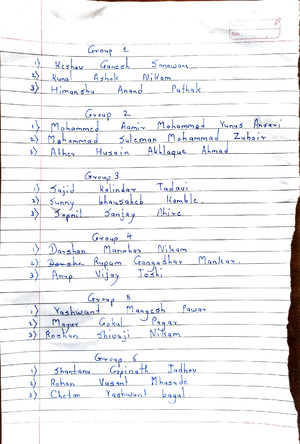 Group 1
1) Keshav Ganesh Sonawane
2) Kunal Ashok Nikam
3) Himanshu Anand Pathak
Group 2
1) Mohammed Aamir Mohammed Yunus Ansari
2) Mohammad Suleman Mohammad Zubair
3) Ather Husain Akhlaque Ahmad
Group 3
1) Sajid Kalindar Tadavi
2) Sunny bhausaheb Kamble.
3) Sopnil Sanjay Ahire
Group 4
1) Darshan Manohar Nikam
2) Rupam Gangadhar Mankar.
3) Anup Vijay Joshi
Group 5
1) Yashwant Mangesh Pawar
2) Mayur Gokul Pagar
3) Roshan Shivaji Nikam
Group 6
1) Shantanu Gopinath Jadhav
2) Rohan Vasant Mhasade
3) Chetan Yashwant bagul